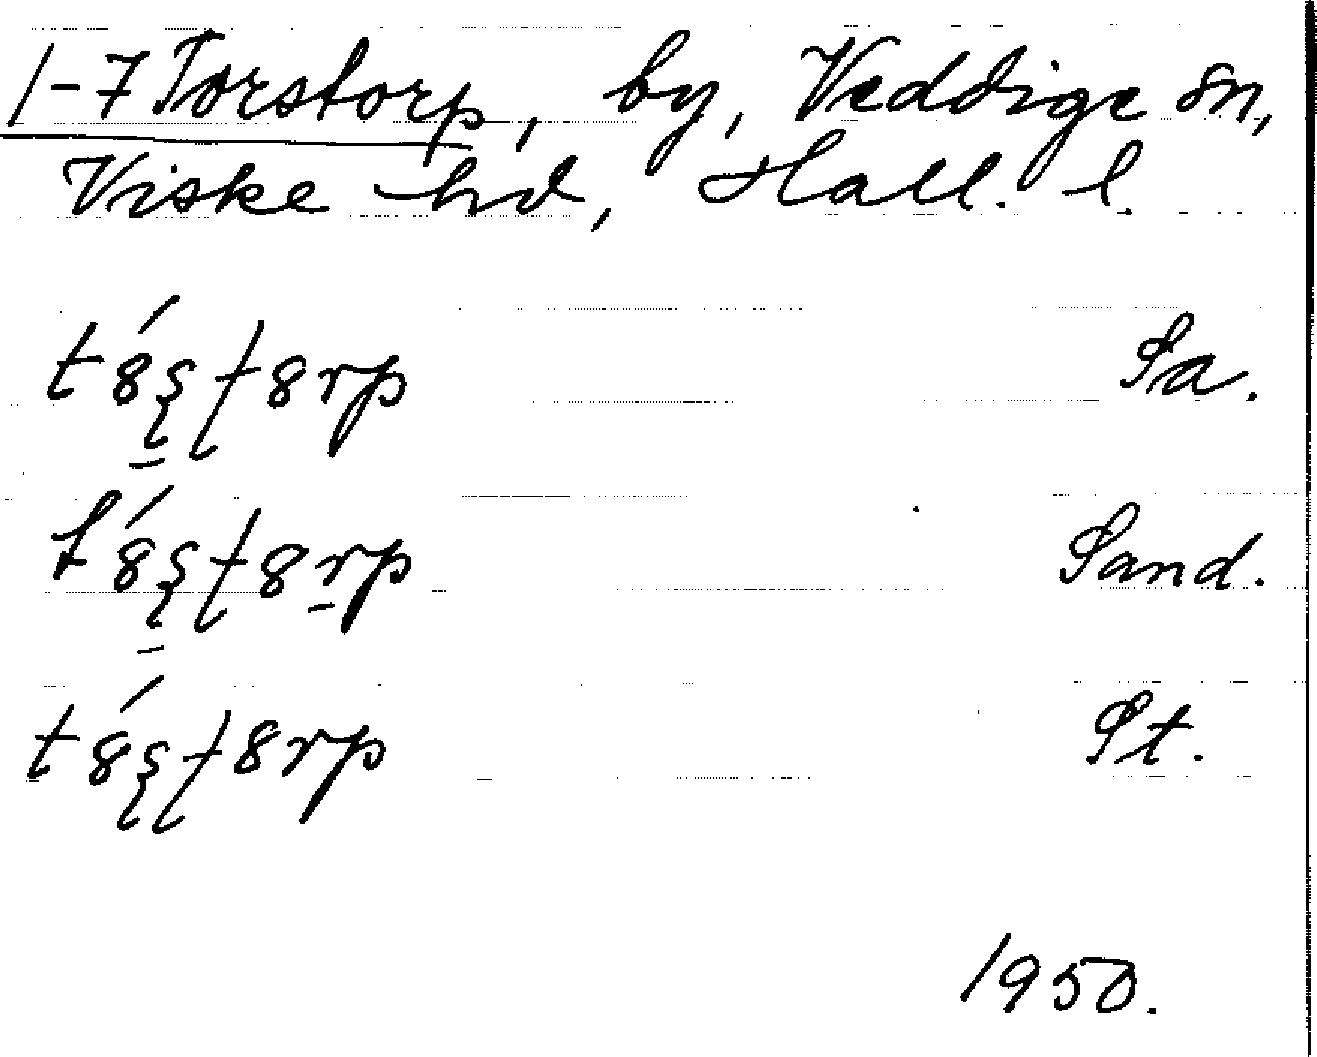 1-7 Torstorp, by, Veddige sn,
Viske hd, Hall. l.
t8́ʂʈ8rp Sa.
t8́ʂʈ8rp Sand.
t8́ʂʈ8rp St.
1950.